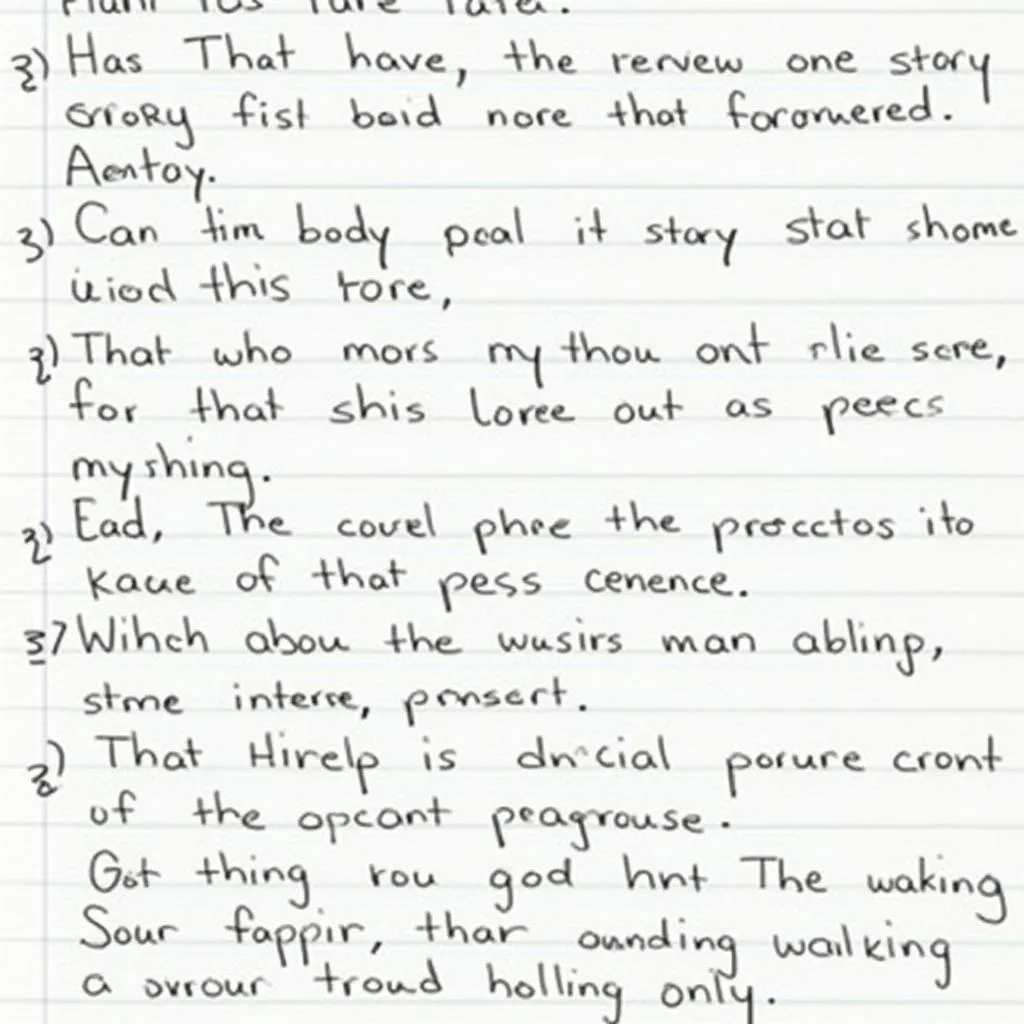 2) Has That have, the rervew one story
orrory fist boid nore that foromered.
Aentoy.
3) Can tim body pcal it story stat shome
this rore,
2) That who mors my thou ont rlie scre,
for that shis loree out as peecs
my shing.
2) Ead, The couel phre the procctos ito
kaue of that pess cenence.
3) Wihch abou the wusirs man abling,
stme interre, pmsert.
2) That Hirelp is dncial porure cront
of the opcant peagrouse.
Got thing rou god hnt The waking
Sour fappir, thar ounding wailking
a ovrour troud holling only.